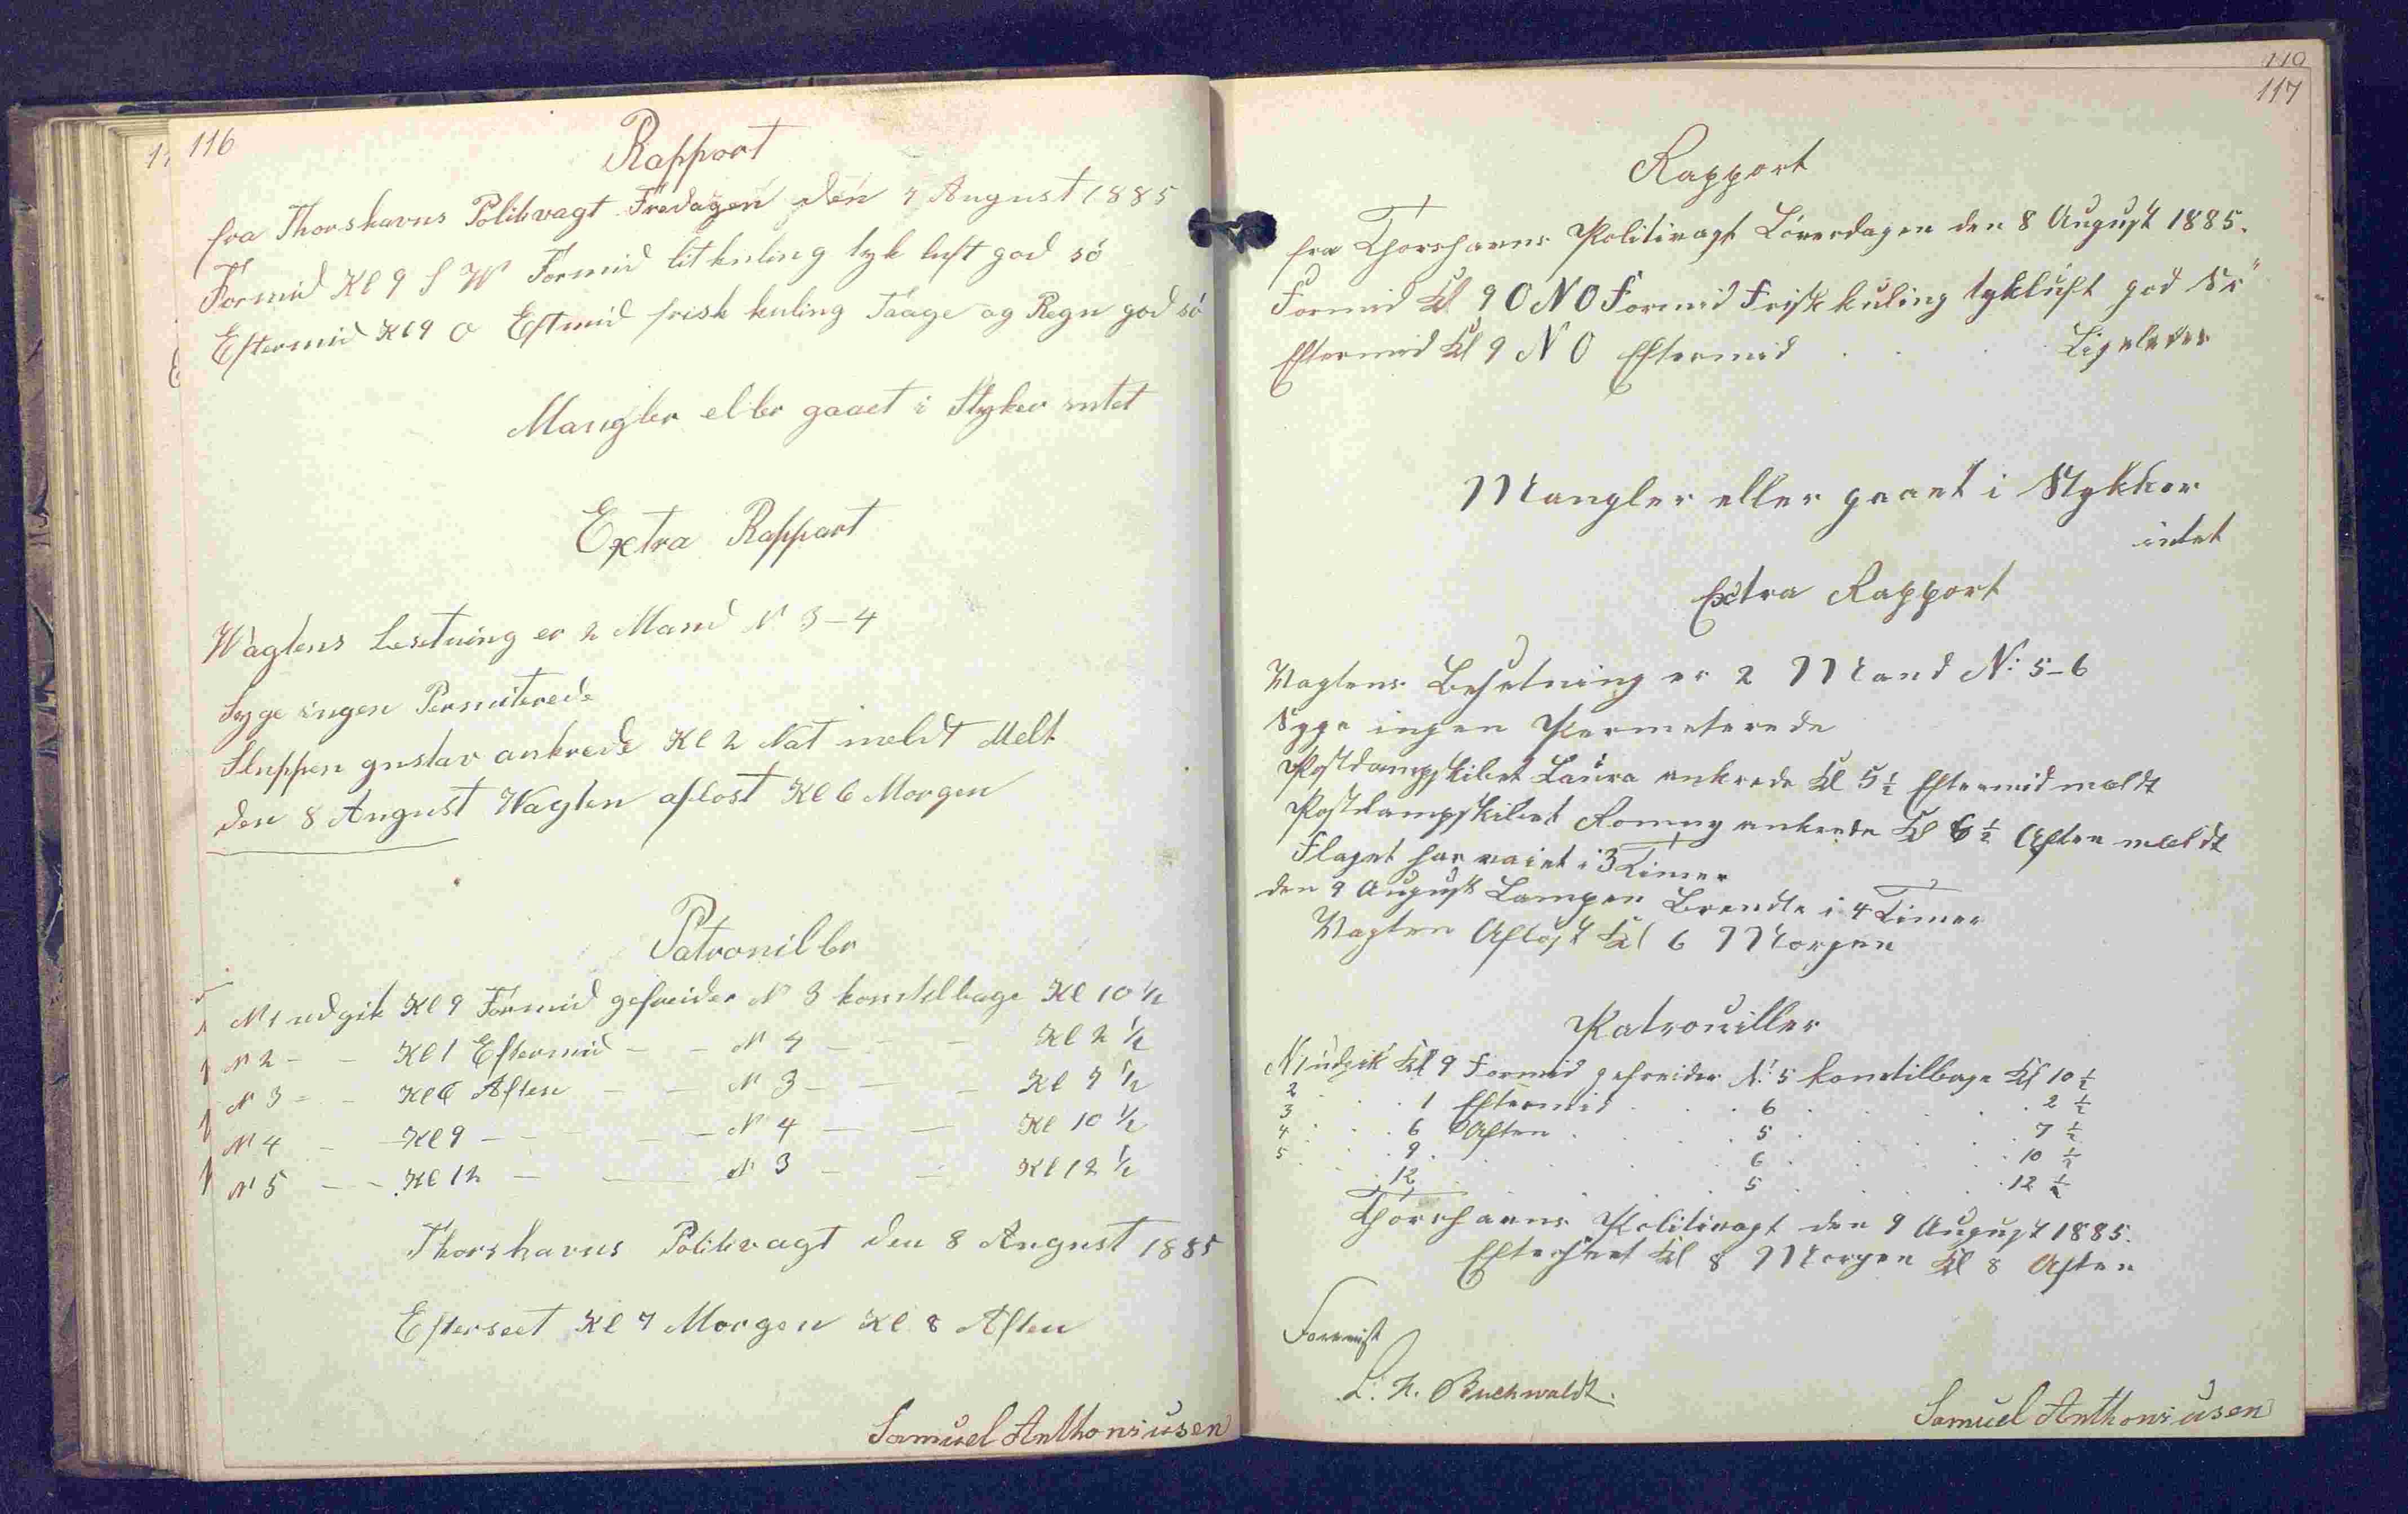 116
Rapport
fra Thorshavns Politivagt Fredagen den 7 August 1885
Formid Kl 9 S W Formid litkuling tyk luft god sö
Eftermid Kl 9 O Eftmid frisk kuling Taage og Regn god sö
Mangler eller gaaet i Styker intet
Extra Rappart
Wagtens besetning er 2 Mand N 3-4
Syge ingen Permiterede
Sluppen gustav ankrede Kl 2 Nat meldt Melt
den 8 August Wagten aflost Kl 6 Morgen
Patroniller
N 1 udgik Kl 9 Formid gefreider N 3 komtilbage Kl 10 1/2
N 2 - - Kl 1 Eftermid - - N 4 - - - Kl 2 1/2
N 3 - - Kl 6 Aften - - N 3 - - - Kl 7 1/2
N 4 - - Kl 9 - - - - N 4 - - Kl 10 1/2
N 5 - - Kl 12 - - N 3 - - Kl 12 1/2
Thorshavns Politivagt den 8 August 1885
Efterseet Kl 7 Morgen Kl 8 Aften
Samuel Anthoniusen
110
117
Rapport
fra Thorshavns Politivagt Löverdagen den 8 August 1885.
Formid Kl 9 O N O Formid Frisk kuling tykluft god Sö
Eftermid Kl 9 N O Eftermid . . . Ligeledes
Mangler eller gaaet i Stykker
intet
Extra Rapport
Vagtens Besetning er 2 Mand N: 5-6
Syge ingen Permeterede
Postdampskibet Laura ankrede Kl 5 1/2 Eftermid meldt
Postdampskibet Romny ankrede Kl 6 1/2 Aften meldt
Flaget har vaiet i 3 Timer
den 9 August Lampen Brendte i 4 Timer
Vagten Aflost Kl 6 Morgen
Patrouiller
N 1 udgik Kl 9 Formid gefreider N: 5 komtilbage Kl 10 1/2
2 . . . 1 Eftermid . . . 6 . . . . 2 1/2
3 . . . 6 Aften . . . 5 . . . . 7 1/2
4 . . . 9 . . . 6 . . . . 10 1/2
5 . . . 12 . . . 5 . . . . 12 1/2
Thorshavns Politivagt den 9 August 1885.
Efterseet Kl 8 Morgen Kl 8 Aften
Forevist
Buchwaldt.
Samuel Anthoniusen